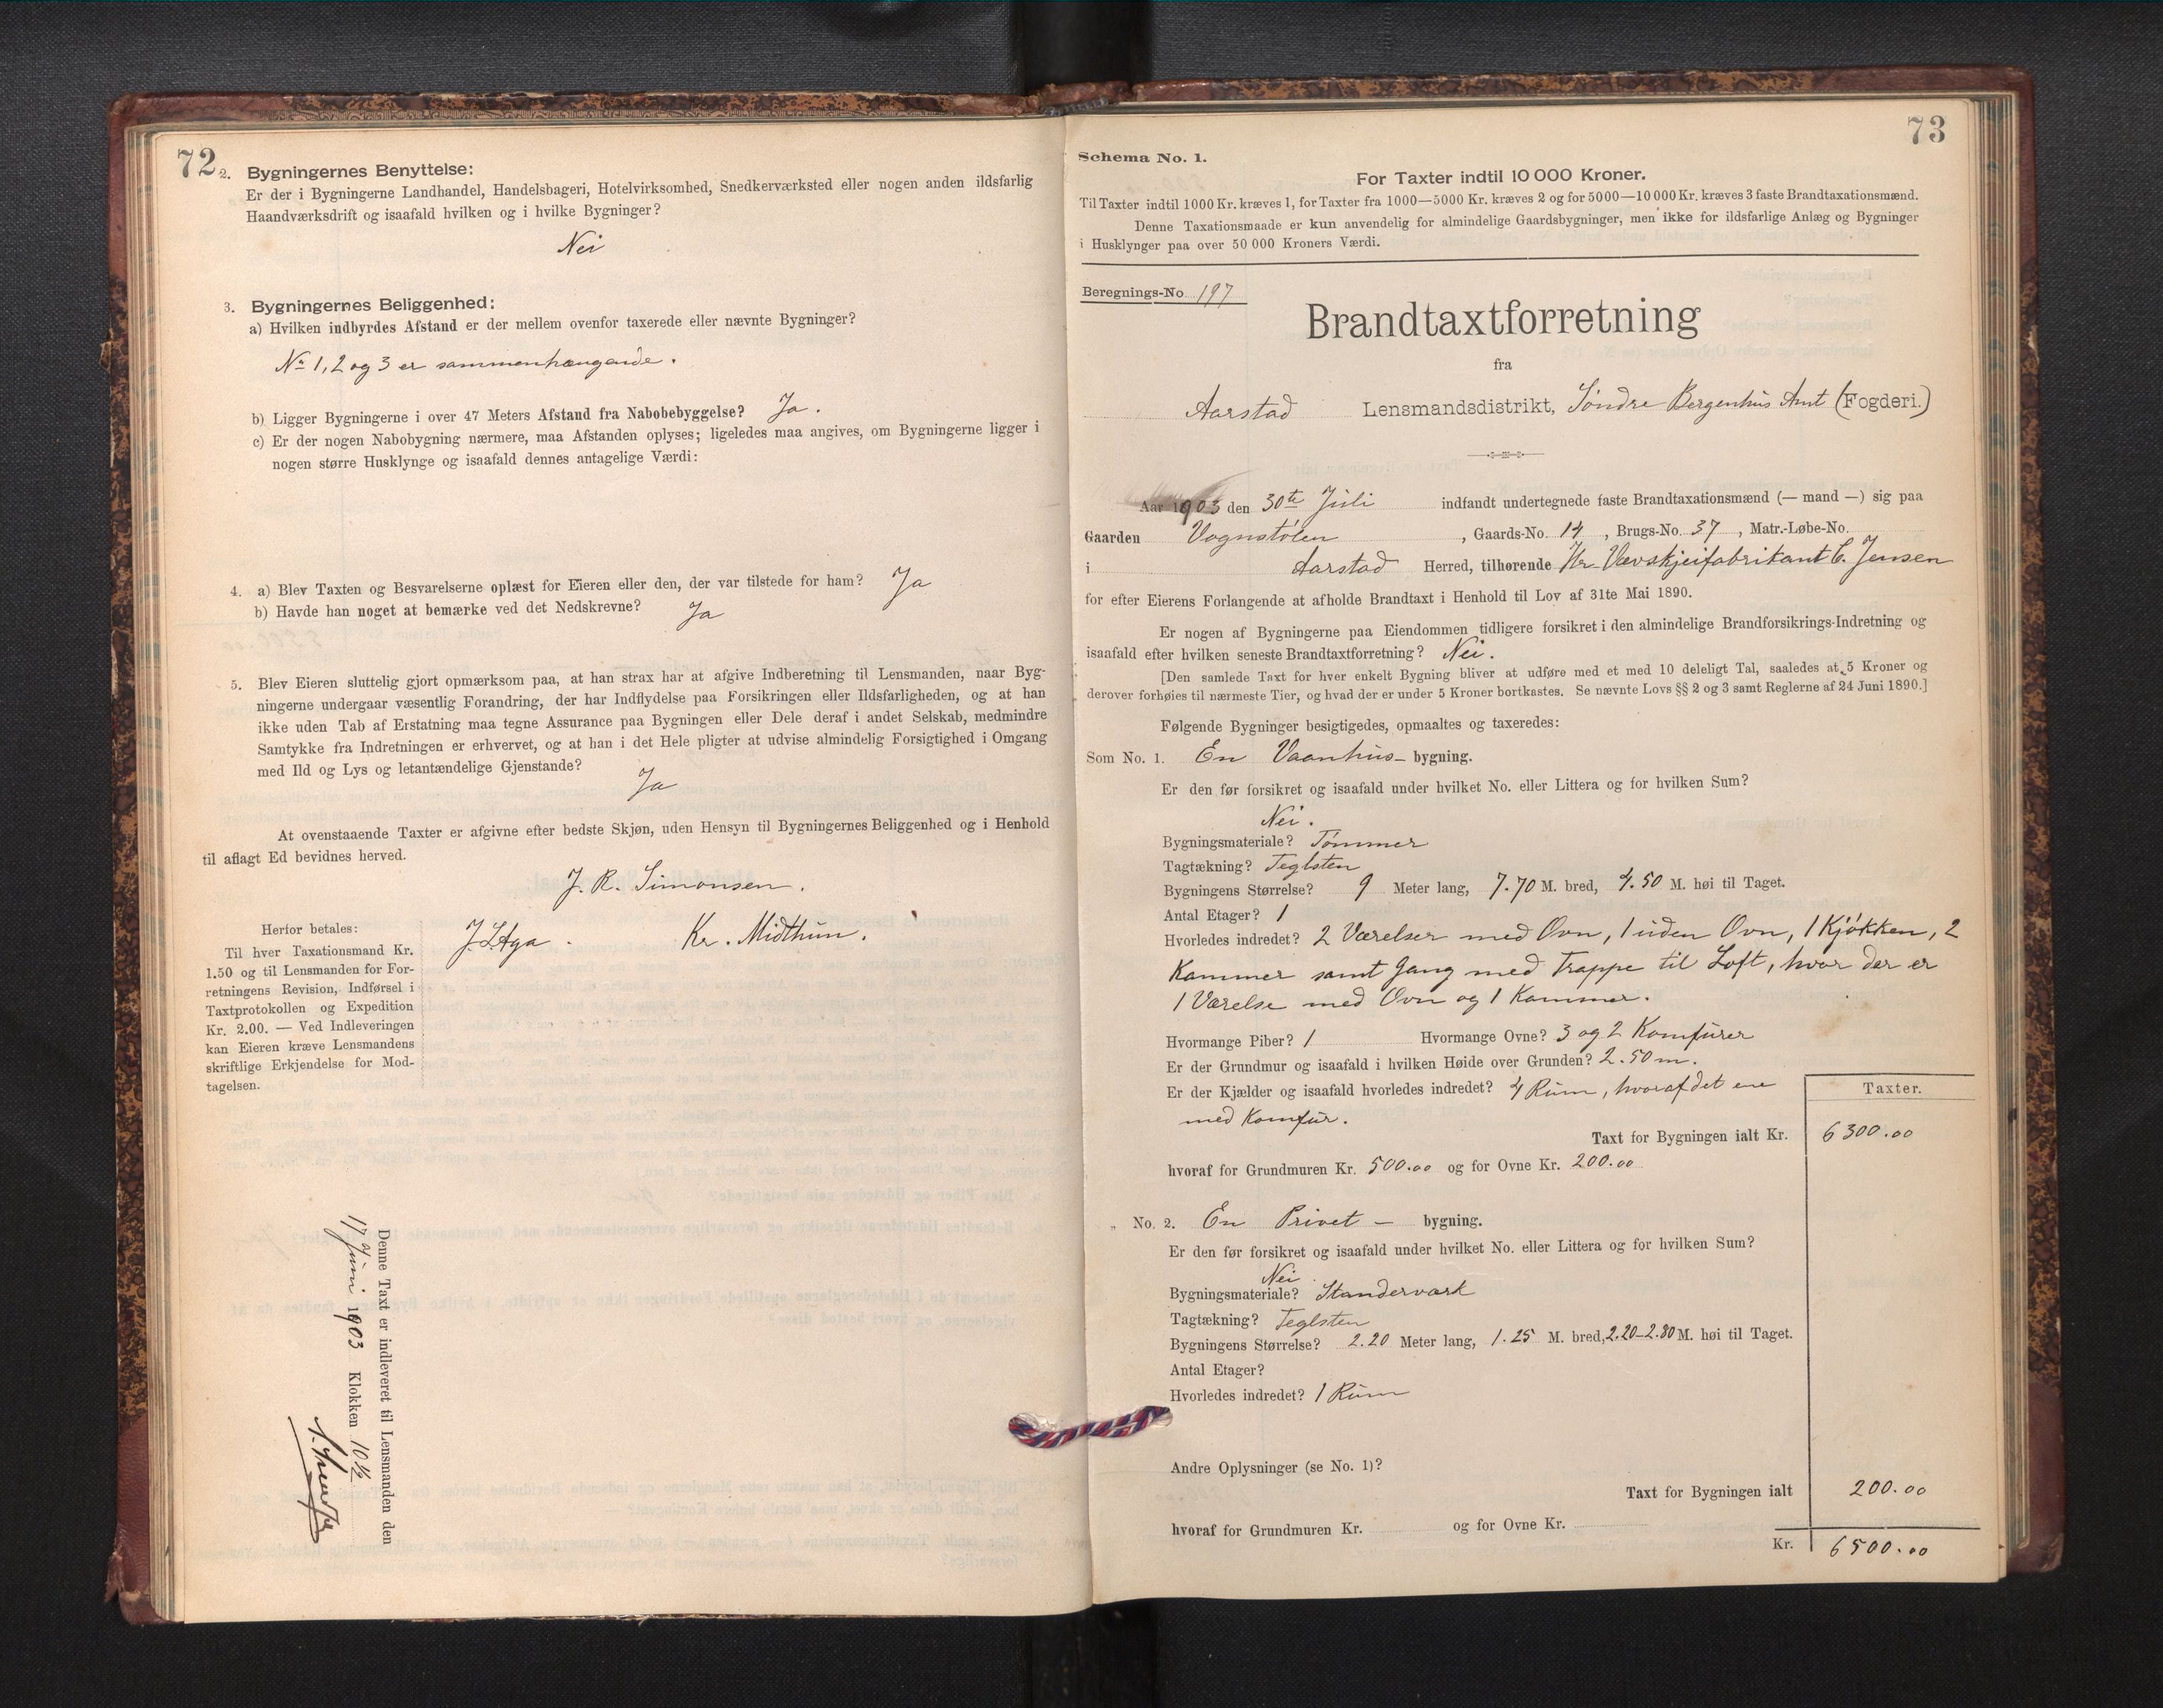 72
2. Bygningernes Benyttelse:
Er der i Bygningerne Landhandel, Handelsbageri, Hotelvirksomhed, Snedkerværksted eller nogen anden ildsfarlig
Haandværksdrift og isaafald hvilken og i hvilke Bygninger?
Nei
3. Bygningernes Beliggenhed:
a) Hvilken indbyrdes Afstand er der mellem ovenfor taxerede eller nævnte Bygninger?
No 1, 2 og 3 er sammenhængende.
b) Ligger Bygningerne i over 47 Meters Afstand fra Nabobebyggelse? Ja.
c) Er der nogen Nabobygning nærmere, maa Afstanden oplyses; ligeledes maa angives, om Bygningerne ligger i
nogen større Husklynge og isaafald dennes antagelige Værdi:
4. a) Blev Taxten og Besvarelserne oplæst for Eieren eller den, der var tilstede for ham? Ja
b) Havde han noget at bemærke ved det Nedskrevne? Ja
5. Blev Eieren sluttelig gjort opmærksom paa, at han strax har at afgive Indberetning til Lensmanden, naar Byg-
ningerne undergaar væsentlig Forandring, der har Indflydelse paa Forsikringen eller Ildsfarligheden, og at han
ikke uden Tab af Erstatning maa tegne Assurance paa Bygningen eller Dele deraf i andet Selskab, medmindre
Samtykke fra Indretningen er erhvervet, og at han i det Hele pligter at udvise almindelig Forsigtighed i Omgang
med Ild og Lys og letantændelige Gjenstande?
Ja
At ovenstaaende Taxter er afgivne efter bedste Skjøn, uden Hensyn til Bygningernes Beliggenhed og i Henhold
til aflagt Ed bevidnes herved.
J. R. Simonsen.
J. L. Aga. Kr. Midthun.
Herfor betales:
Til hver Taxationsmand Kr.
1.50 og til Lensmanden for For-
retningens Revision, Indførsel i
Taxtprotokollen og Expedition
Kr. 2.00. — Ved Indleveringen
kan Eieren kræve Lensmandens
skriftlige Erkjendelse for Mod-
tagelsen.
Denne Taxt er indleveret til Lensmanden den
17 Juni 1903 Klokken 10½
73
Schema No. 1.
For Taxter indtil 10 000 Kroner.
Til Taxter indtil 1000 Kr. kræves 1, for Taxter fra 1000—5000 Kr. kræves 2 og for 5000—10 000 Kr. kræves 3 faste Brandtaxationsmænd.
Denne Taxationsmaade er kun anvendelig for almindelige Gaardsbygninger, men ikke for ildsfarlige Anlæg og Bygninger
i Husklynger paa over 50 000 Kroners Værdi.
Beregnings-No. 197
Brandtaxtforretning
fra
Aarstad Lensmandsdistrikt, Søndre Bergenhus Amt (Fogderi.)
Aar 1903 den 30te Juli indfandt undertegnede faste Brandtaxationsmænd (— mand —) sig paa
Gaarden Vognstølen, Gaards-No. 14, Brugs-No. 37, Matr.-Løbe-No.
i Aarstad Herred, tilhørende Hr. Vævskjeifabrikant C. Jensen
for efter Eierens Forlangende at afholde Brandtaxt i Henhold til Lov af 31te Mai 1890.
Er nogen af Bygningerne paa Eiendommen tidligere forsikret i den almindelige Brandforsikrings-Indretning og
isaafald efter hvilken seneste Brandtaxtforretning? Nei.
[Den samlede Taxt for hver enkelt Bygning bliver at udføre med et med 10 deleligt Tal, saaledes at 5 Kroner og
derover forhøies til nærmeste Tier, og hvad der er under 5 Kroner bortkastes. Se nævnte Lovs §§ 2 og 3 samt Reglerne af 24 Juni 1890.]
Følgende Bygninger besigtigedes, opmaaltes og taxeredes:
Som No. 1. En Vaanhus- bygning.
Er den før forsikret og isaafald under hvilket No. eller Littera og for hvilken Sum?
Nei.
Bygningsmateriale? Tømmer
Tagtækning? Teglsten
Bygningens Størrelse? 9 Meter lang, 7.70 M. bred, 4.50 M. høi til Taget.
Antal Etager? 1
Hvorledes indredet? 2 Værelser med Ovn, 1 uden Ovn, 1 Kjøkken, 2
Kammer samt Gang med Trappe til Loft, hvor der er
1 Værelse med Ovn og 1 Kammer.
Hvormange Piber? 1 Hvormange Ovne? 3 og 2 Komfurer
Er der Grundmur og isaafald i hvilken Høide over Grunden? 2.50 m.
Er der Kjælder og isaafald hvorledes indredet? 4 Rum, hvoraf det ene
med Komfur.
Taxter.
Taxt for Bygningen ialt Kr. 6300.00
hvoraf for Grundmuren Kr. 500.00 og for Ovne Kr. 200.00
" No. 2. En Privet - bygning.
Er den før forsikret og isaafald under hvilket No. eller Littera og for hvilken Sum?
Nei
Bygningsmateriale? Standerværk
Tagtækning? Teglsten
Bygningens Størrelse? 2.20 Meter lang, 1.25 M. bred, 2.20-2.80 M. høi til Taget.
Antal Etager?
Hvorledes indredet? 1 Rum
Andre Oplysninger (se No. 1)?
Taxt for Bygningen ialt 200.00
hvoraf for Grundmuren Kr. og for Ovne Kr.
Kr. 6500.00